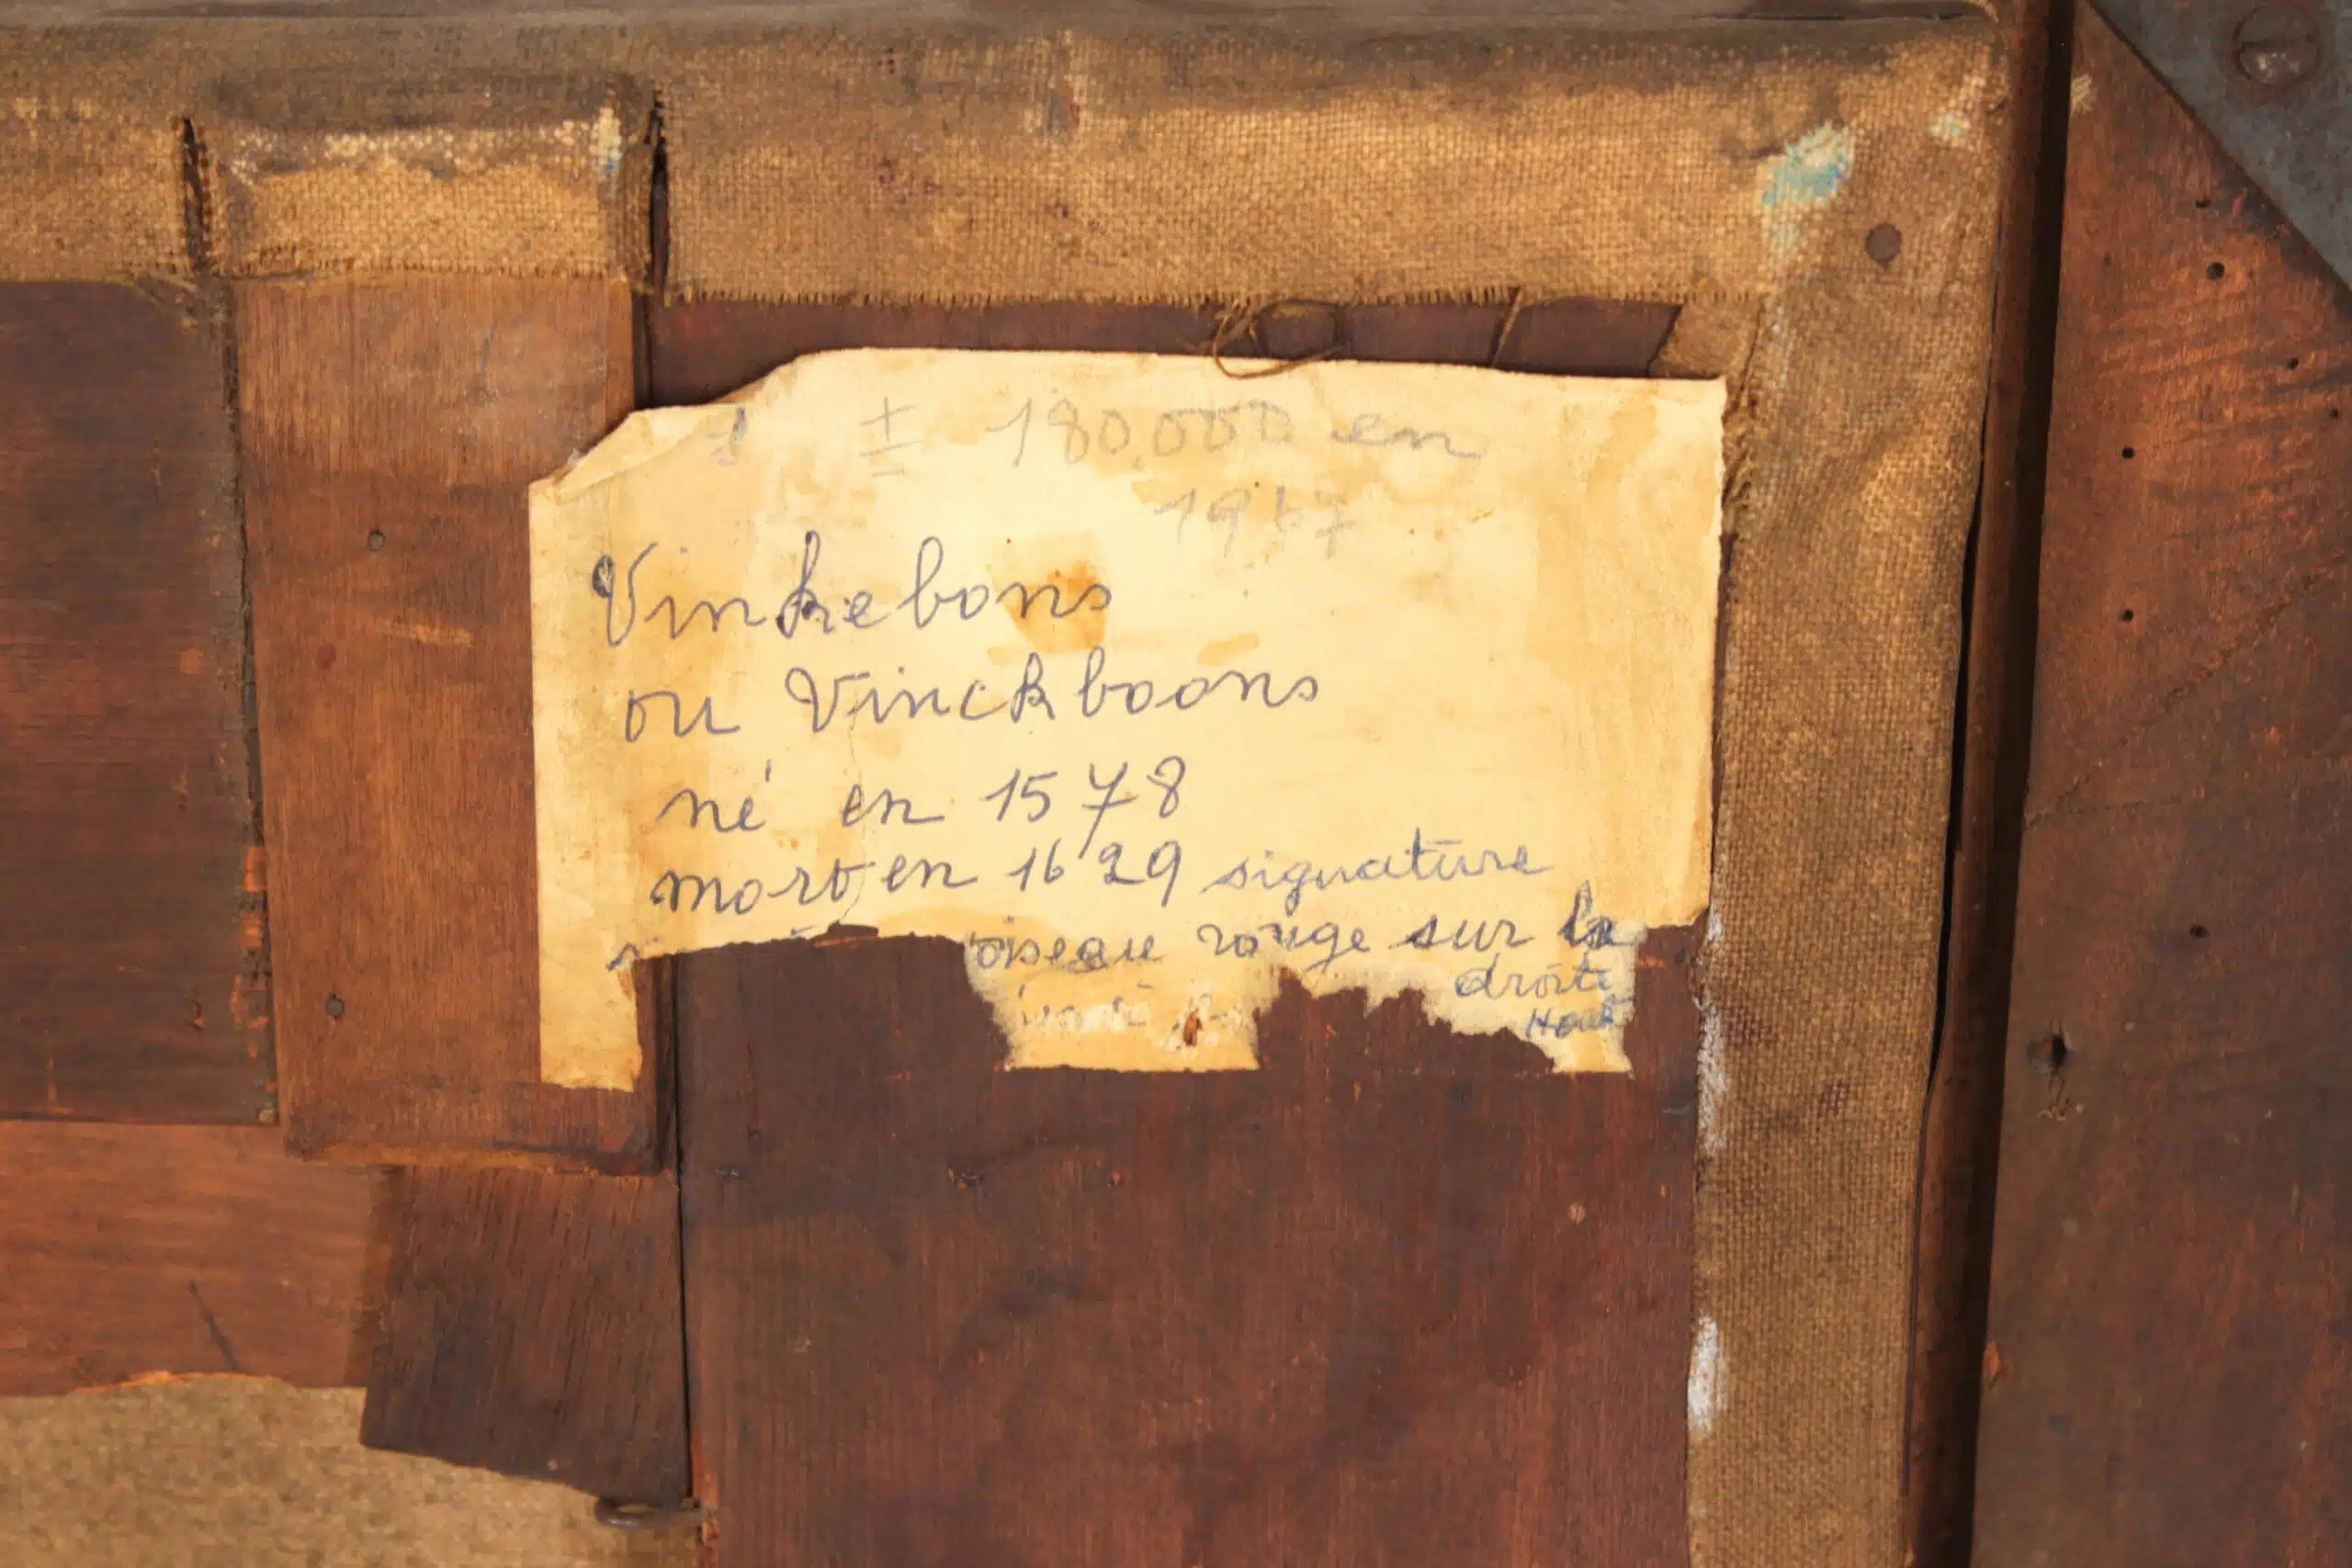 ± 180.000 en
Vinkebons
ou Vinckboons
né en 1578
mort en 1629 signature
oiseau rouge sur la
droite
Haut